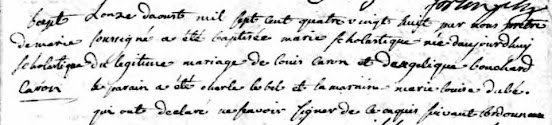 Bapt Lonze daoust mil sept cent quatre vingt huit par nous prêtre
de marie soussigné a été baptisée marie scholastique née daujourdhuy
scholastique du legitime mariage de louis caron et dangelique bouchard
Caron le parain a été charle lebel et la maraine marie louise dubé
qui ont declaré ne scavoir signer de ce enquis suivant lordonnance